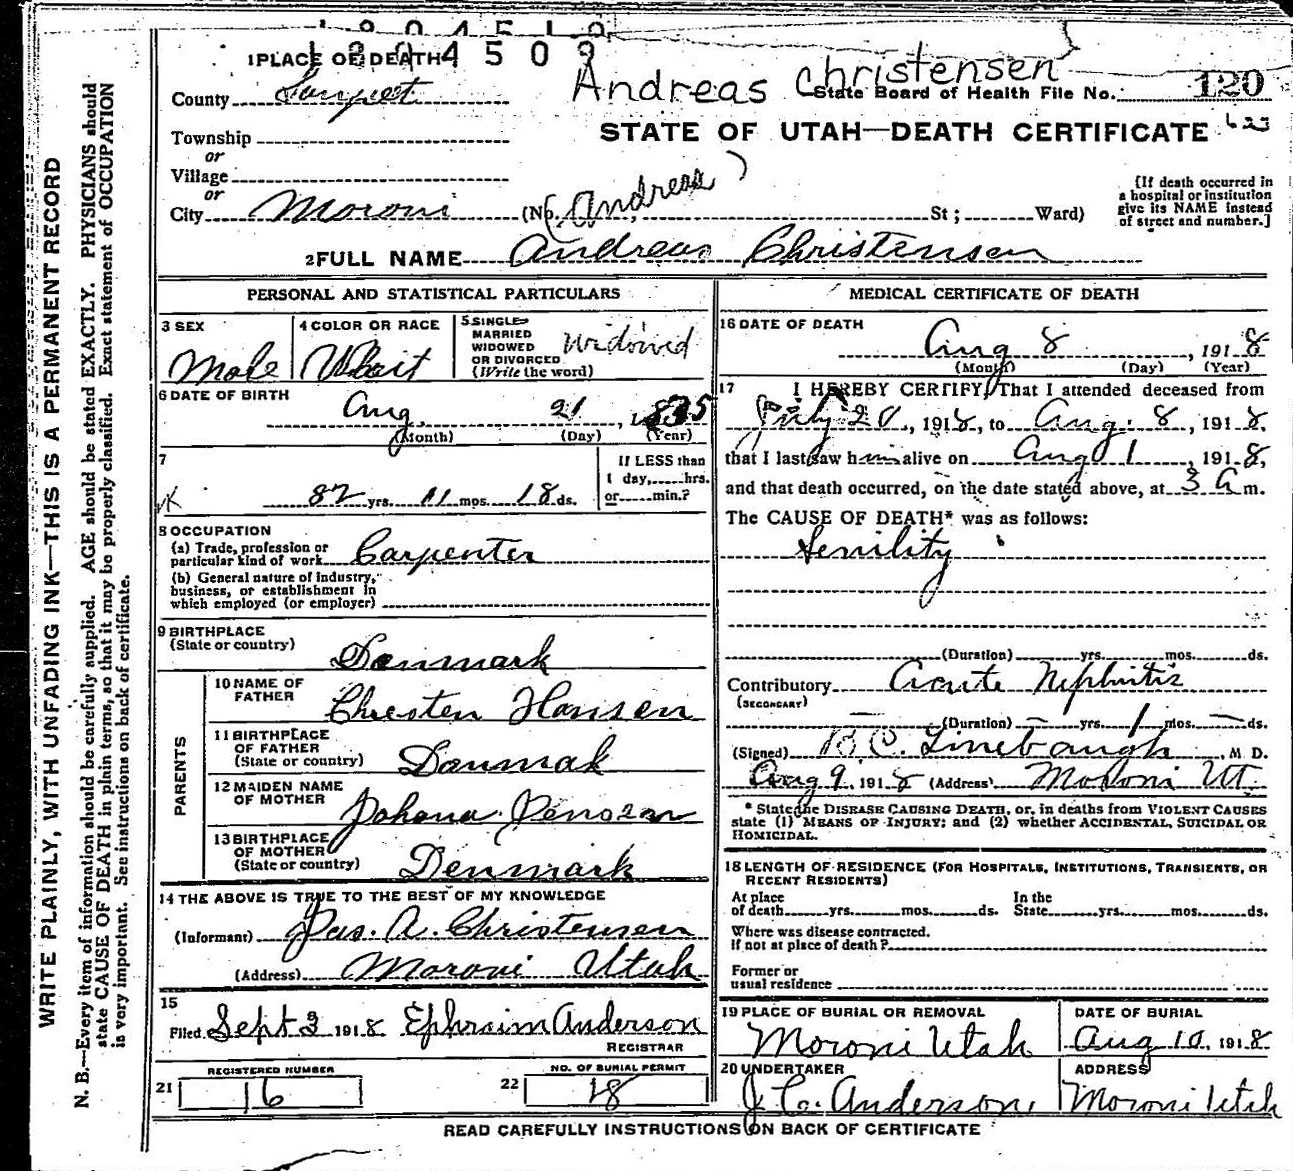 1804509
1 PLACE OF DEATH
Andreas Christensen
County Sanpeet
State Board of Health File No. 120
Township
STATE OF UTAH—DEATH CERTIFICATE 623
or
Village
or
City Moroni (No. Andreas) St; Ward)
[If death occurred in
a hospital or institution
give its NAME instead
of street and number.]
2 FULL NAME Andreas Christensen
PERSONAL AND STATISTICAL PARTICULARS
3 SEX
Male
4 COLOR OR RACE
Whait
5 SINGLE
MARRIED
WIDOWED
OR DIVORCED
(Write the word)
Widowed
6 DATE OF BIRTH
Aug. 21, 1835
(Month) (Day) (Year)
7
82 yrs. 11 mos. 18 ds.
If LESS than
1 day, hrs.
or min.?
8 OCCUPATION
(a) Trade, profession or
particular kind of work Carpenter
(b) General nature of industry,
business, or establishment in
which employed (or employer)
9 BIRTHPLACE
(State or country)
Danmark
PARENTS
10 NAME OF
FATHER
Chresten Hansen
11 BIRTHPLACE
OF FATHER
(State or country)
Danmak
12 MAIDEN NAME
OF MOTHER
Johana Jensen
13 BIRTHPLACE
OF MOTHER
(State or country)
Denmark
14 THE ABOVE IS TRUE TO THE BEST OF MY KNOWLEDGE
(Informant) Jas. A. Christensen
(Address) Moroni Utah
15
Filed Sept 3 1918 Ephraim Anderson
REGISTRAR
REGISTERED NUMBER
21 16
NO. OF BURIAL PERMIT
22 18
MEDICAL CERTIFICATE OF DEATH
16 DATE OF DEATH
Aug 8, 1918
(Month) (Day) (Year)
17 I HEREBY CERTIFY, That I attended deceased from
July 20, 1918, to Aug. 8, 1918,
that I last saw him alive on Aug 1, 1918,
and that death occurred, on the date stated above, at 3 A m.
The CAUSE OF DEATH* was as follows:
Senility
(Duration) yrs. mos. ds.
Contributory Acute Nephritis
(SECONDARY)
(Duration) — yrs. 1 mos. — ds.
(Signed) B. C. Linebaugh, M D.
Aug 9, 1918 (Address) Moroni Ut.
* State the DISEASE CAUSING DEATH, or, in deaths from VIOLENT CAUSES
state (1) MEANS OF INJURY; and (2) whether ACCIDENTAL, SUICIDAL OR
HOMICIDAL.
18 LENGTH OF RESIDENCE (FOR HOSPITALS, INSTITUTIONS, TRANSIENTS, OR
RECENT RESIDENTS)
At place
of death yrs. mos. ds.
In the
State yrs. mos. ds.
Where was disease contracted.
If not at place of death?
Former or
usual residence
19 PLACE OF BURIAL OR REMOVAL
Moroni Utah
DATE OF BURIAL
Aug 10, 1918
20 UNDERTAKER
J. C. Anderson,
ADDRESS
Moroni Utah
READ CAREFULLY INSTRUCTIONS ON BACK OF CERTIFICATE
WRITE PLAINLY, WITH UNFADING INK—THIS IS A PERMANENT RECORD
N. B.—Every item of information should be carefully supplied. AGE should be stated EXACTLY. PHYSICIANS should
state CAUSE OF DEATH in plain terms, so that it may be properly classified. Exact statement of OCCUPATION
is very important. See instructions on back of certificate.